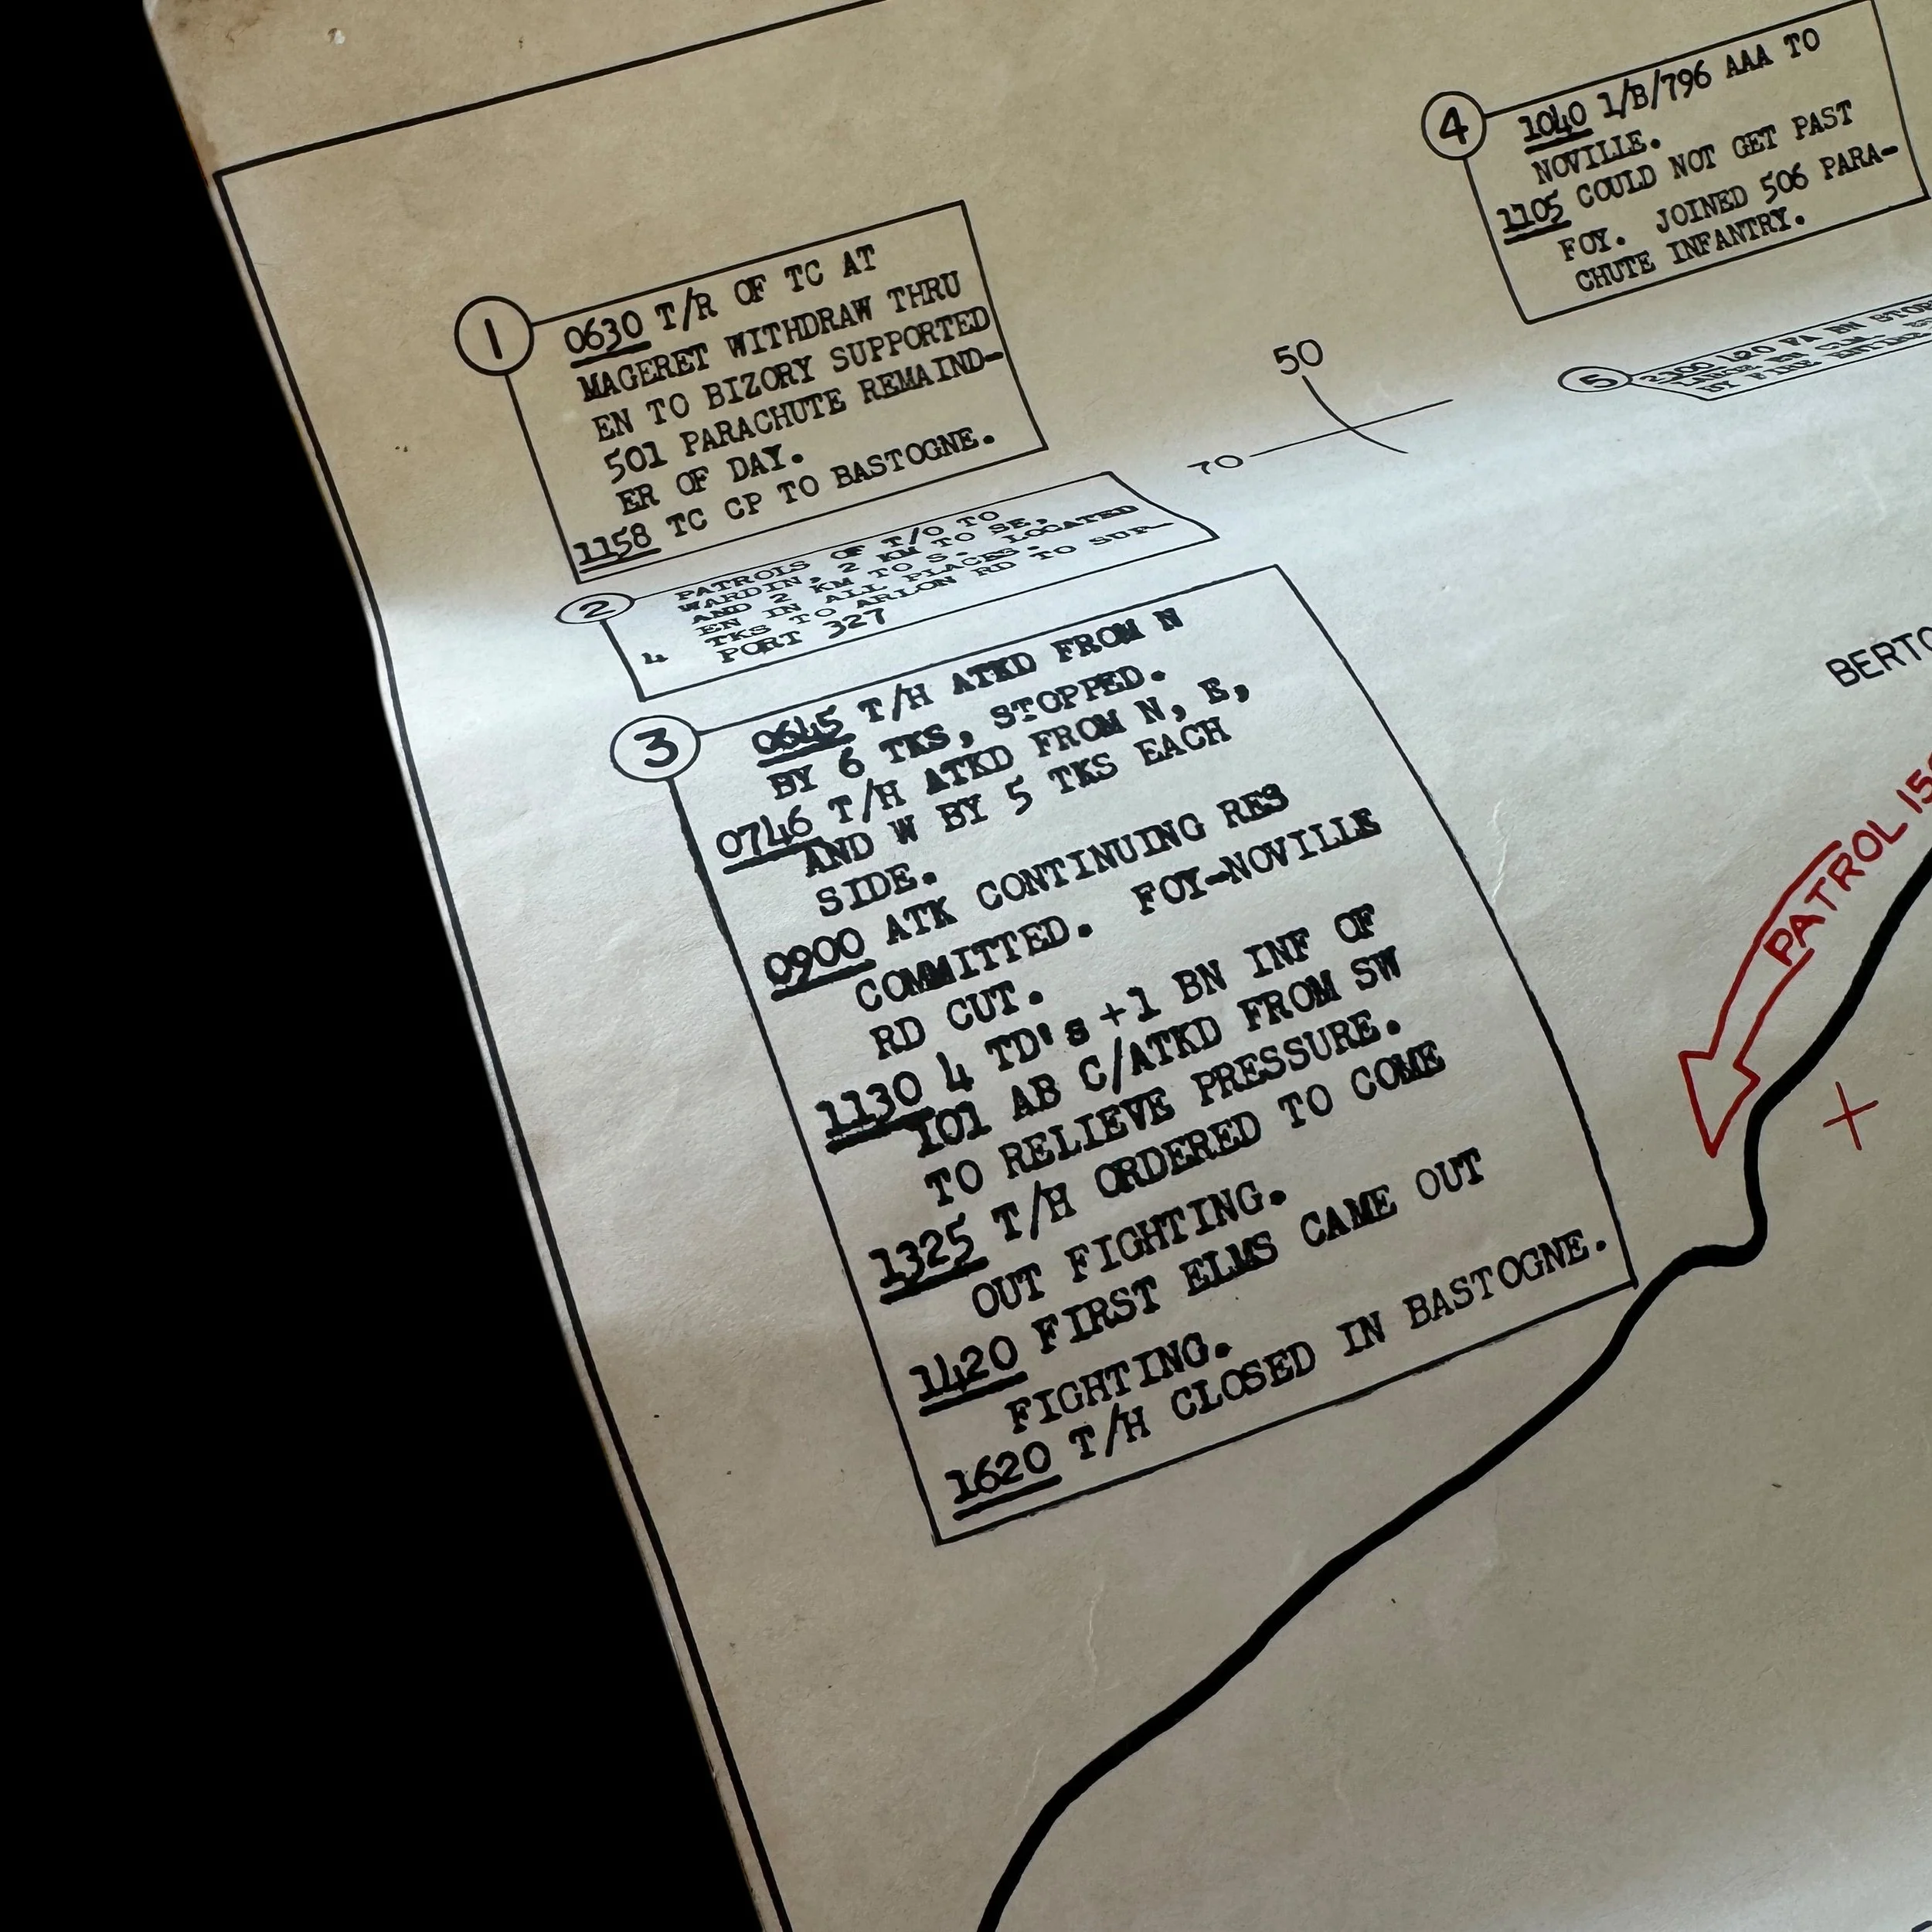 1
0630 T/R OF TC AT
MAGERET WITHDRAW THRU
EN TO BIZORY SUPPORTED
501 PARACHUTE REMAIND-
ER OF DAY.
1158 TC CP TO BASTOGNE.
2
PATROLS OF T/O TO
WARDIN, 2 KM TO SE,
AND 2 KM TO S. LOCATED
EN IN ALL PLACES.
4 TKS TO ARLON RD TO SUP-
PORT 327
3
0645 T/H ATKD FROM N
BY 6 TKS, STOPPED.
0746 T/H ATKD FROM N, E,
AND W BY 5 TKS EACH
SIDE.
0900 ATK CONTINUING RES
COMMITTED. FOY-NOVILLE
RD CUT.
1130 4 TD's +1 BN INF OF
101 AB C/ATKD FROM SW
TO RELIEVE PRESSURE.
1325 T/H ORDERED TO COME
OUT FIGHTING.
1420 FIRST ELMS CAME OUT
FIGHTING.
1620 T/H CLOSED IN BASTOGNE.
4
1040 1/B/796 AAA TO
NOVILLE.
1105 COULD NOT GET PAST
FOY. JOINED 506 PARA-
CHUTE INFANTRY.
5
2300 420 FA BN
BY FIRE
50
70
PATROL